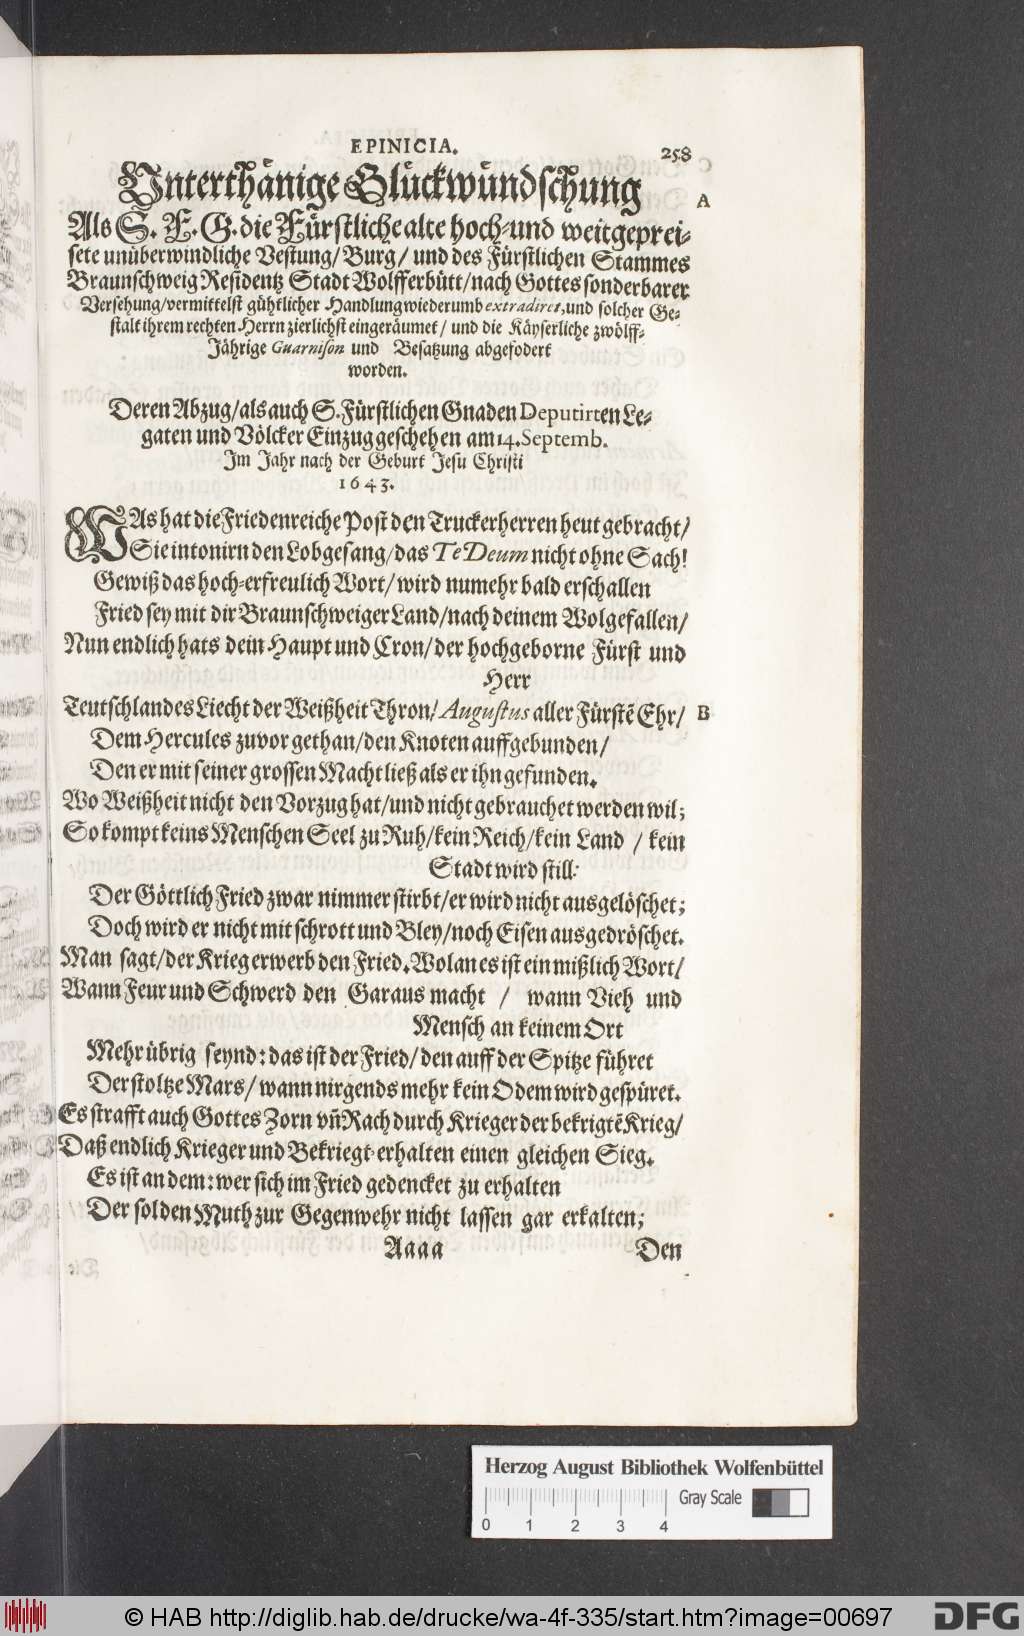 EPINICIA.
258
Unterthänige Glückwündschung
A
Als S. F. G. die Fürstliche alte hoch-und weitgeprei-
sete unüberwindliche Vestung/ Burg/ und des Fürstlichen Stammes
Braunschweig Residentz Stadt Wolfferbütt/ nach Gottes sonderbarer
Versehung/ vermittelst gühtlicher Handlung wiederumb extradiret, und solcher Ge-
stalt ihrem rechten Herrn zierlichst eingeräumet/ und die Käyserliche zwölff-
Jährige Guarnison und Besatzung abgefodert
worden.
Deren Abzug/ als auch S. Fürstlichen Gnaden Deputirten Le-
gaten und Völcker Einzug geschehen am 14. Septemb.
Im Jahr nach der Geburt Jesu Christi
1643.
WAs hat die Friedenreiche Post den Truckerherren heut gebracht/
Sie intonirn den Lobgesang/ das Te Deum nicht ohne Sach!
Gewiß das hoch-erfreulich Wort/ wird numehr bald erschallen
Fried sey mit dir Braunschweiger Land/ nach deinem Wolgefallen/
Nun endlich hats dein Haupt und Cron/ der hochgeborne Fürst und
Herr
Teutschlandes Liecht der Weißheit Thron/ Augustus aller Fürstẽ Ehr/
B
Dem Hercules zuvor gethan/ den Knoten auffgebunden/
Den er mit seiner grossen Macht ließ als er ihn gefunden.
Wo Weißheit nicht den Vorzug hat/ und nicht gebrauchet werden wil;
So kompt keins Menschen Seel zu Ruh/ kein Reich/ kein Land / kein
Stadt wird still:
Der Göttlich Fried zwar nimmer stirbt/ er wird nicht ausgelöschet;
Doch wird er nicht mit schrott und Bley/ noch Eisen ausgedröschet.
Man sagt/ der Krieg erwerb den Fried. Wolan es ist ein mißlich Wort/
Wann Feur und Schwerd den Garaus macht / wann Vieh und
Mensch an keinem Ort
Mehr übrig seynd: das ist der Fried/ den auff der Spitze führet
Der stoltze Mars/ wann nirgends mehr kein Odem wird gespüret.
Es strafft auch Gottes Zorn uñ Rach durch Krieger der bekrigtẽ Krieg/
Daß endlich Krieger und Bekriegt erhalten einen gleichen Sieg.
Es ist an dem: wer sich im Fried gedencket zu erhalten
Der sol den Muth zur Gegenwehr nicht lassen gar erkalten;
Aaaa
Den
Herzog August Bibliothek Wolfenbüttel
Gray Scale
0 1 2 3 4
© HAB http://diglib.hab.de/drucke/wa-4f-335/start.htm?image=00697
DFG